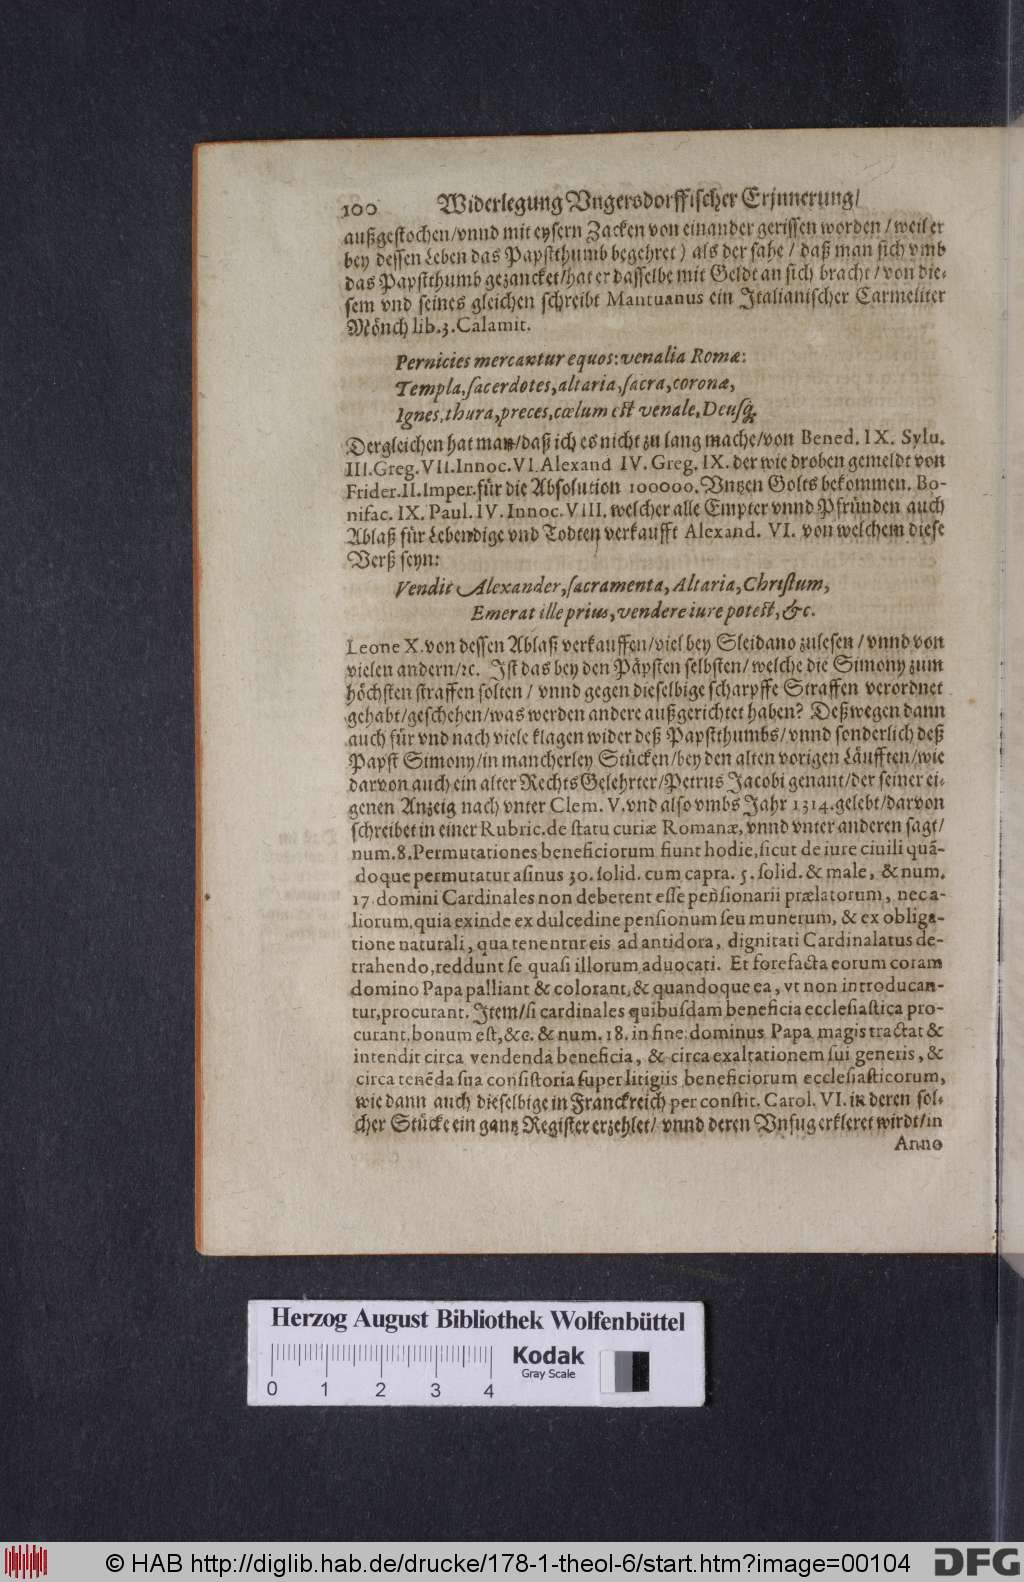 100 Widerlegung Vngersdorffischer Erjnnerung/
außgestochen/vnnd mit eysern Zacken von einander gerissen worden/weil er
bey dessen Leben das Papstthumb begehret) als der sahe/daß man sich vmb
das Papstthumb gezancket/hat er dasselbe mit Geldt an sich bracht/von die-
sem vnd seines gleichen schreibt Mantuanus ein Italianischer Carmeliter
Mönch lib.3.Calamit.
Pernicies mercantur equos: venalia Romæ:
Templa, sacerdotes, altaria, sacra, coronæ,
Ignes, thura, preces, cœlum est venale, Deusq́.
Dergleichen hat man/daß ich es nicht zu lang mache/von Bened. IX. Sylu.
III.Greg.VII.Innoc.VI.Alexand IV. Greg. IX. der wie droben gemeldt von
Frider.II.Imper.für die Absolution 100000. Vntzen Golts bekommen. Bo-
nifac. IX. Paul. IV. Innoc. VIII. welcher alle Empter vnnd Pfründen auch
Ablaß für Lebendige vnd Todten verkaufft Alexand. VI. von welchem diese
Verß seyn:
Vendit Alexander, sacramenta, Altaria, Christum,
Emerat ille prius, vendere iure potest, &c.
Leone X. von dessen Ablaß verkauffen/viel bey Sleidano zulesen/vnnd von
vielen andern/ꝛc. Ist das bey den Päpsten selbsten/welche die Simony zum
höchsten straffen solten/vnnd gegen dieselbige scharpffe Straffen verordnet
gehabt/geschehen/was werden andere außgerichtet haben? Deßwegen dann
auch für vnd nach viele klagen wider deß Papstthumbs/vnnd sonderlich deß
Papst Simony/in mancherley Stücken/bey den alten vorigen Läufften/wie
darvon auch ein alter RechtsGelehrter/Petrus Jacobi genant/der seiner ei-
genen Anzeig nach vnter Clem. V. vnd also vmbs Jahr 1314. gelebt/darvon
schreibet in einer Rubric. de statu curiæ Romanæ, vnnd vnter anderen sagt/
num. 8. Permutationes beneficiorum fiunt hodie, sicut de iure ciuili quã-
doque permutatur asinus 30. solid. cum capra. 5. solid. & male, & num.
17 domini Cardinales non deberent esse pensionarii prælatorum, nec a-
liorum, quia exinde ex dulcedine pensionum seu munerum, & ex obliga-
tione naturali, qua tenentur eis ad antidora, dignitati Cardinalatus de-
trahendo, reddunt se quasi illorum aduocati. Et forefacta eorum coram
domino Papa palliant & colorant, & quandoque ea, vt non introducan-
tur, procurant. Item/si cardinales quibusdam beneficia ecclesiastica pro-
curant, bonum est, &c. & num. 18. in fine dominus Papa magis tractat &
intendit circa vendenda beneficia, & circa exaltationem sui generis, &
circa tenẽda sua consistoria super litigiis beneficiorum ecclesiasticorum,
wie dann auch dieselbige in Franckreich per constit. Carol. VI. in deren sol-
cher Stücke ein gantz Register erzehlet/vnnd deren Vnfug erkleret wirdt/in
Anno
Herzog August Bibliothek Wolfenbüttel
0 1 2 3 4
Kodak
Gray Scale
© HAB http://diglib.hab.de/drucke/178-1-theol-6/start.htm?image=00104
DFG